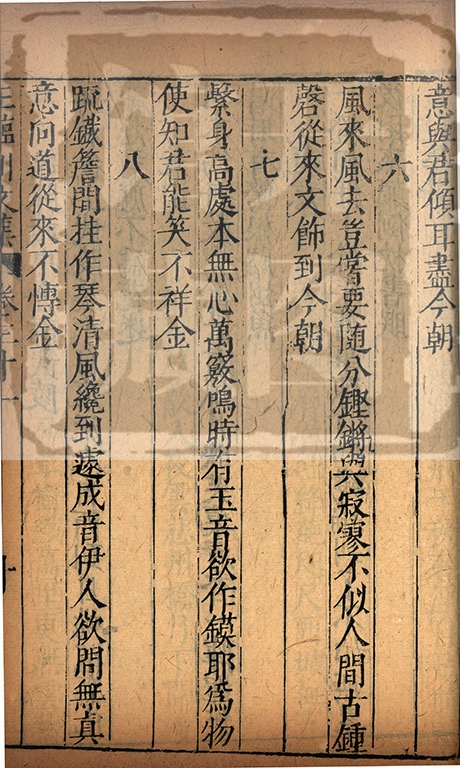 意與君傾耳盡今朝
六
風來風去豈嘗要隨分鏗鏘與寂寥不似人間古鍾
磬從來文飾到今朝
七
繫身高處本無心萬竅鳴時有玉音欲作鏌耶爲物
使知君能笑不祥金
八
疏鐵簷間挂作琴清風纔到遽成音伊人欲問無真
意向道從來不博金
王臨川文集 卷三十一